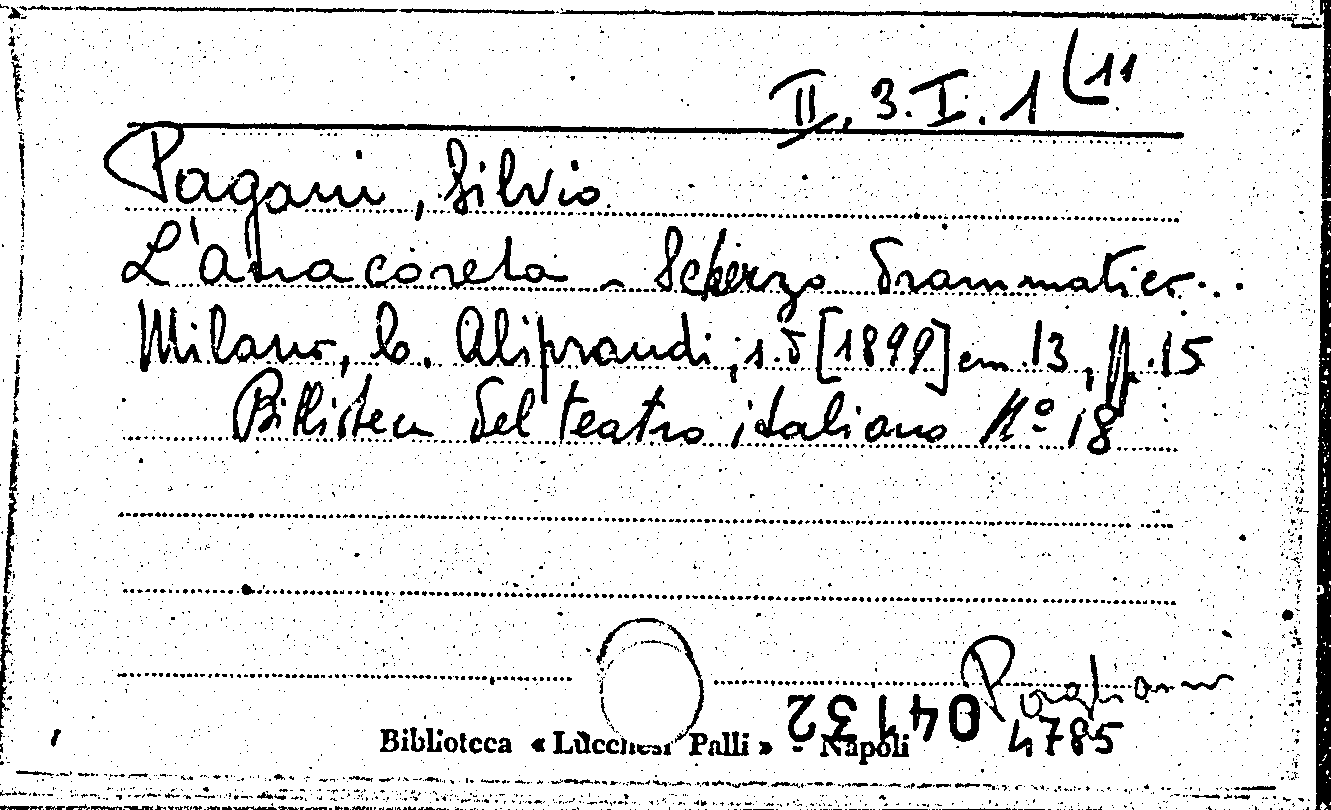 II, 3. I. 1 (11
Pagani, Silvio
L'anacoreta - Scherzo drammatico..
Milano, C. Aliprandi, s.d [1899] cm. 13, pp. 15
Biblioteca del teatro italiano N° 18
04132
4785
Biblioteca « Lucchesi Palli » - Napoli